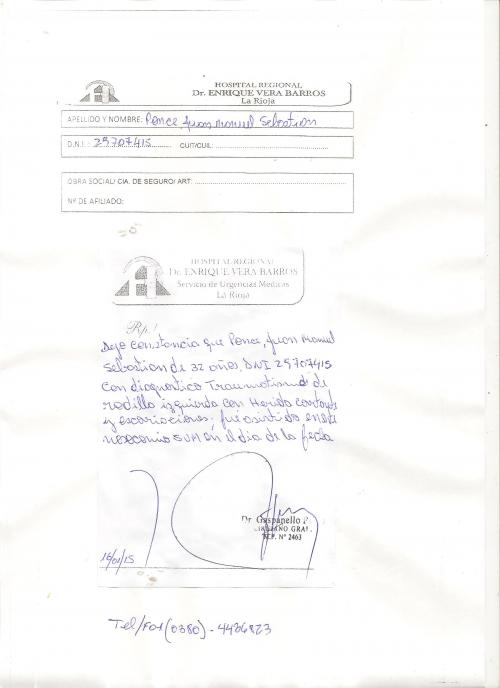 HOSPITAL REGIONAL
Dr. ENRIQUE VERA BARROS
La Rioja
APELLIDO Y NOMBRE: Ponce, Juan Manuel Sebastian
D.N.I. : 29707415 CUIT/CUIL:
OBRA SOCIAL/ CIA. DE SEGURO/ ART:
Nº DE AFILIADO:
HOSPITAL REGIONAL
Dr. ENRIQUE VERA BARROS
Servicio de Urgencias Medicas
La Rioja
Rp./
Dejo constancia que Ponce, Juan Manuel
Sebastian de 32 años, DNI 29707415
Con diagnostico Traumatismo de
rodilla izquierda con Herida cortante
y escoriaciones, fue asistido en este
nosocomio SUM en el dia de la fecha
Dr. Gaspanello P.
CIRUJANO GRAL.
M.P. Nº 2463
16/01/15
Tel/Fax (0380) - 4426823